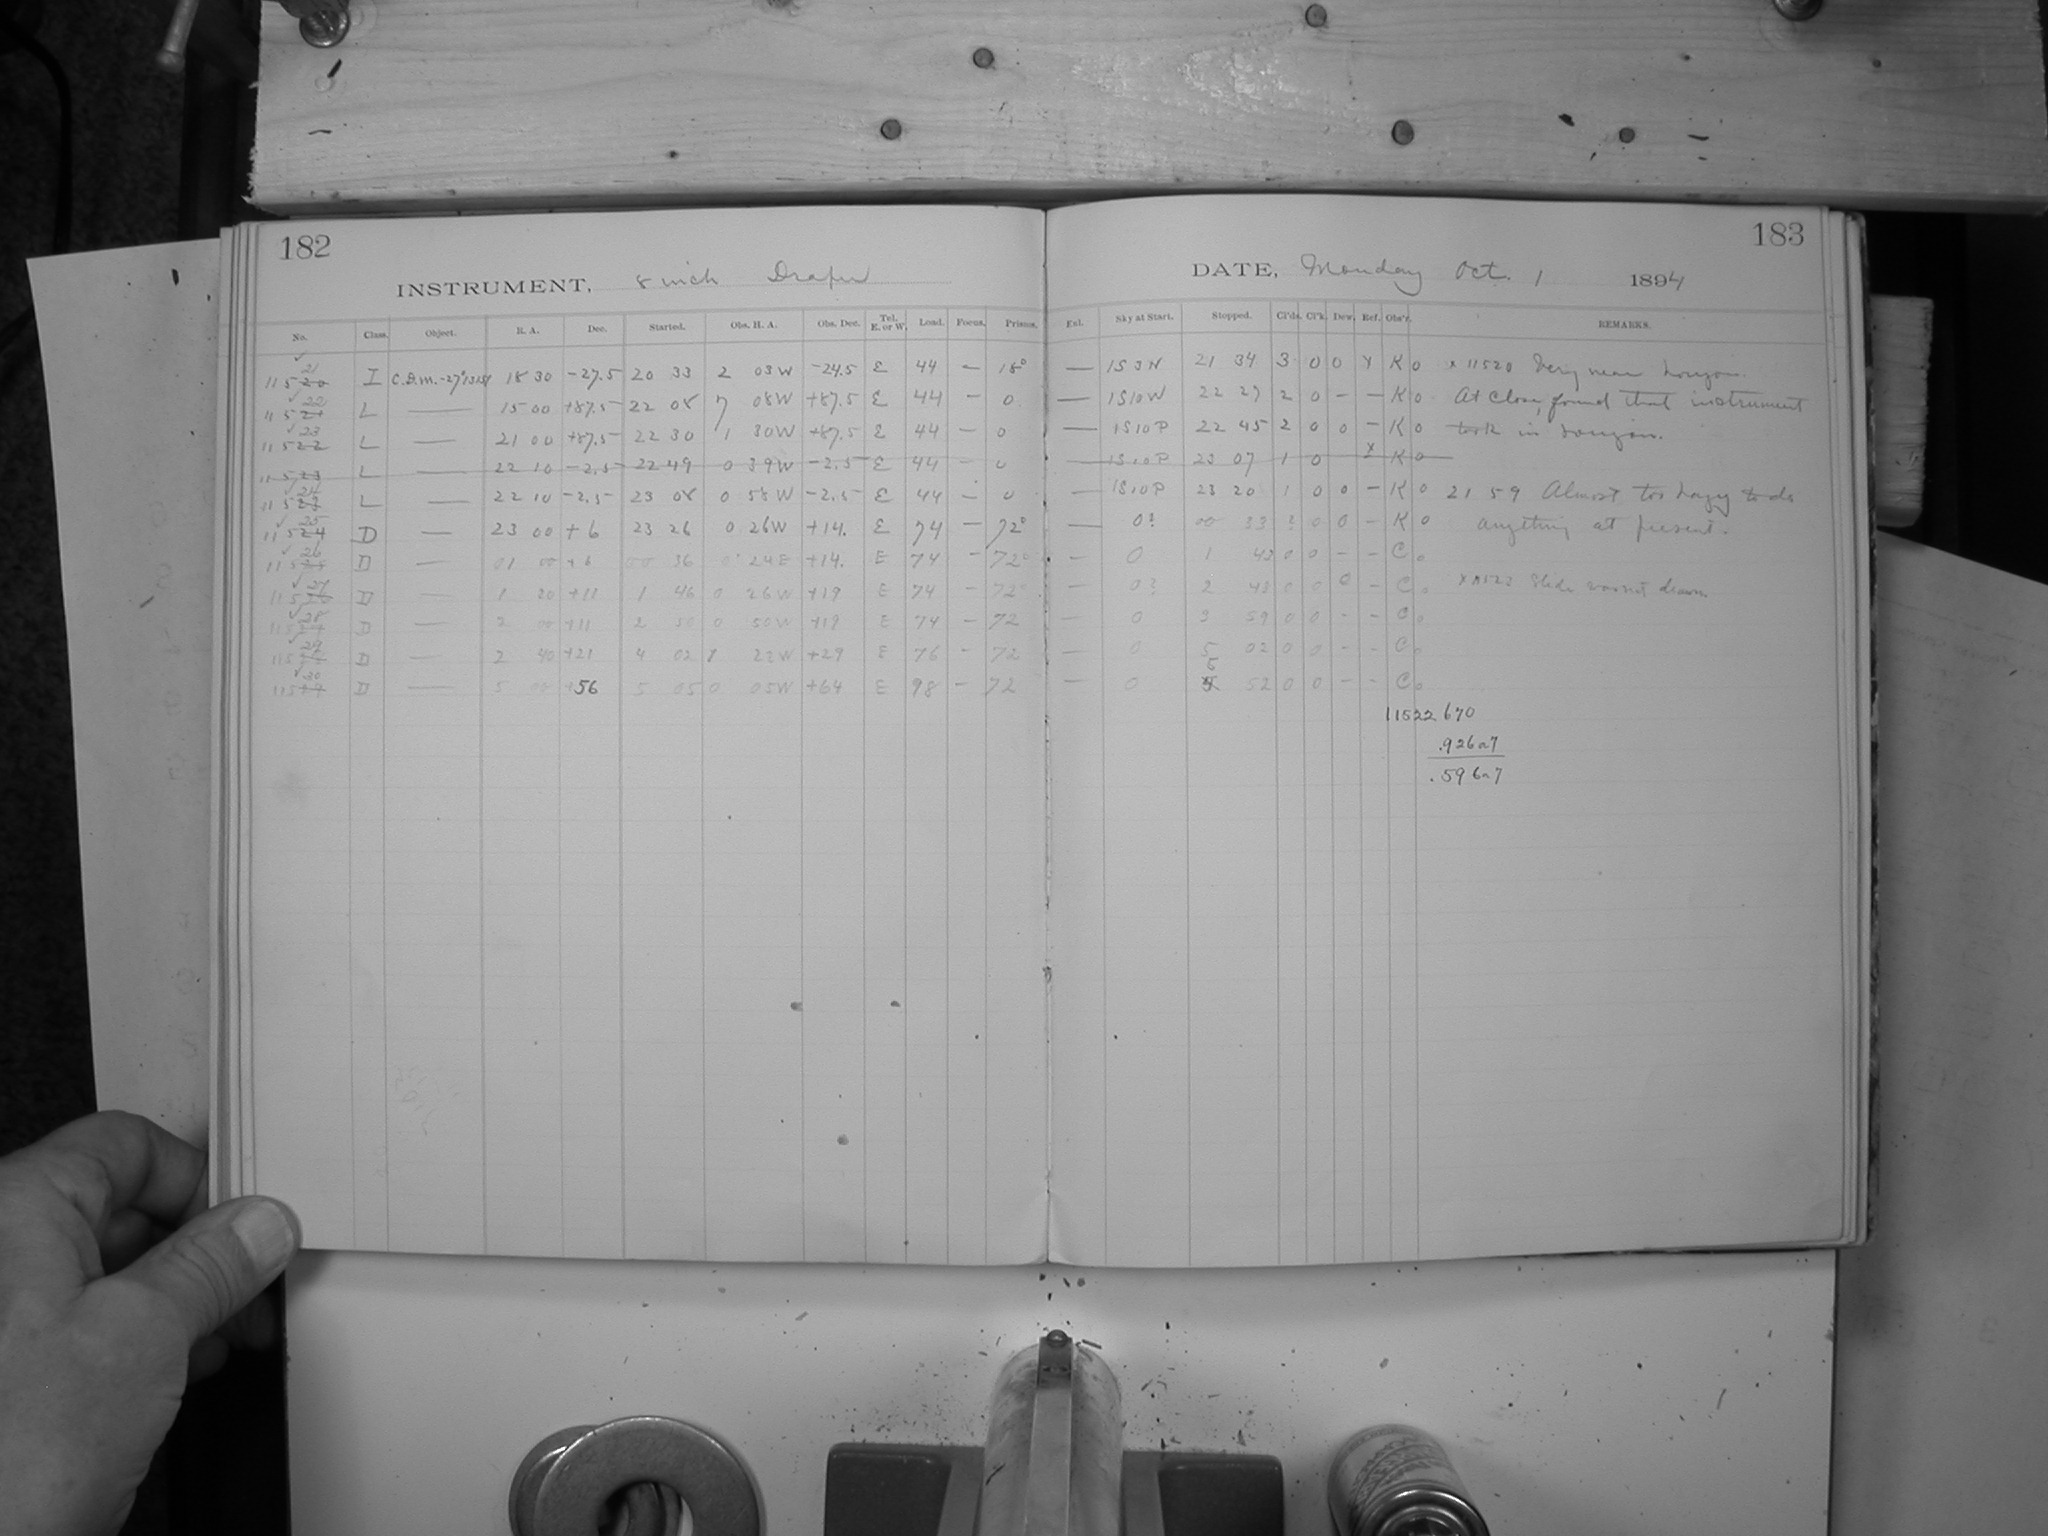 182
INSTRUMENT, 8 inch Draper
No. Class. Object. R. A. Dec. Started. Obs. H. A. Obs. Dec. Tel. E. or W. Load. Focus. Prisms.
21
11520 I C.D.M. 18 30 -27.5 20 33 2 03W -24.5 E 44 — 18°
22
11521 L — 15 00 +87.5 22 08 7 08W +87.5 E 44 - 0
23
11522 L — 21 00 +87.5 22 30 1 30W +87.5 E 44 - 0
11523 L — 22 10 -2.5 22 49 0 39W -2.5 E 44 - 0
24
11523 L — 22 10 -2.5 23 08 0 58W -2.5 E 44 - 0
25
11524 D — 23 00 +6 23 26 0 26W +14. E 74 - 72°
26
11525 D — 01 00 +6 00 36 0 24E +14. E 74 - 72°
27
11526 D — 1 20 +11 1 46 0 26W +19 E 74 - 72°
28
11527 D — 2 00 +11 2 50 0 50W +19 E 74 - 72
29
115 D — 2 40 +21 4 02 1 22W +29 E 76 - 72
30
115 D — 5 00 +56 5 05 0 05W +64 E 98 - 72
183
DATE, Monday Oct. 1 1894
Enl. Sky at Start. Stopped. Cl'ds. Cl'k. Dew. Ref. Obs'r. REMARKS.
— 1S3N 21 34 3 0 0 x K 0 x 11520 Very near horizon.
— 1S10W 22 27 2 0 - - K 0 At close, found that instrument
— 1S10P 22 45 2 0 0 - K 0 took in horizon.
— 1S10P 23 07 1 0 x K 0
— 1S10P 23 20 1 0 0 - K 0 21 59 Almost too hazy to do
— 0? 00 33 ? 0 0 - K 0 anything at present.
— 0 1 43 0 0 - - C 0
— 0? 2 48 0 0 0 - C 0 x 11523 Slide was not drawn.
— 0 3 59 0 0 - - C 0
— 0 5 02 0 0 - - C 0
5
— 0 52 0 0 - - C 0
11522.670
.926a7
.596a7